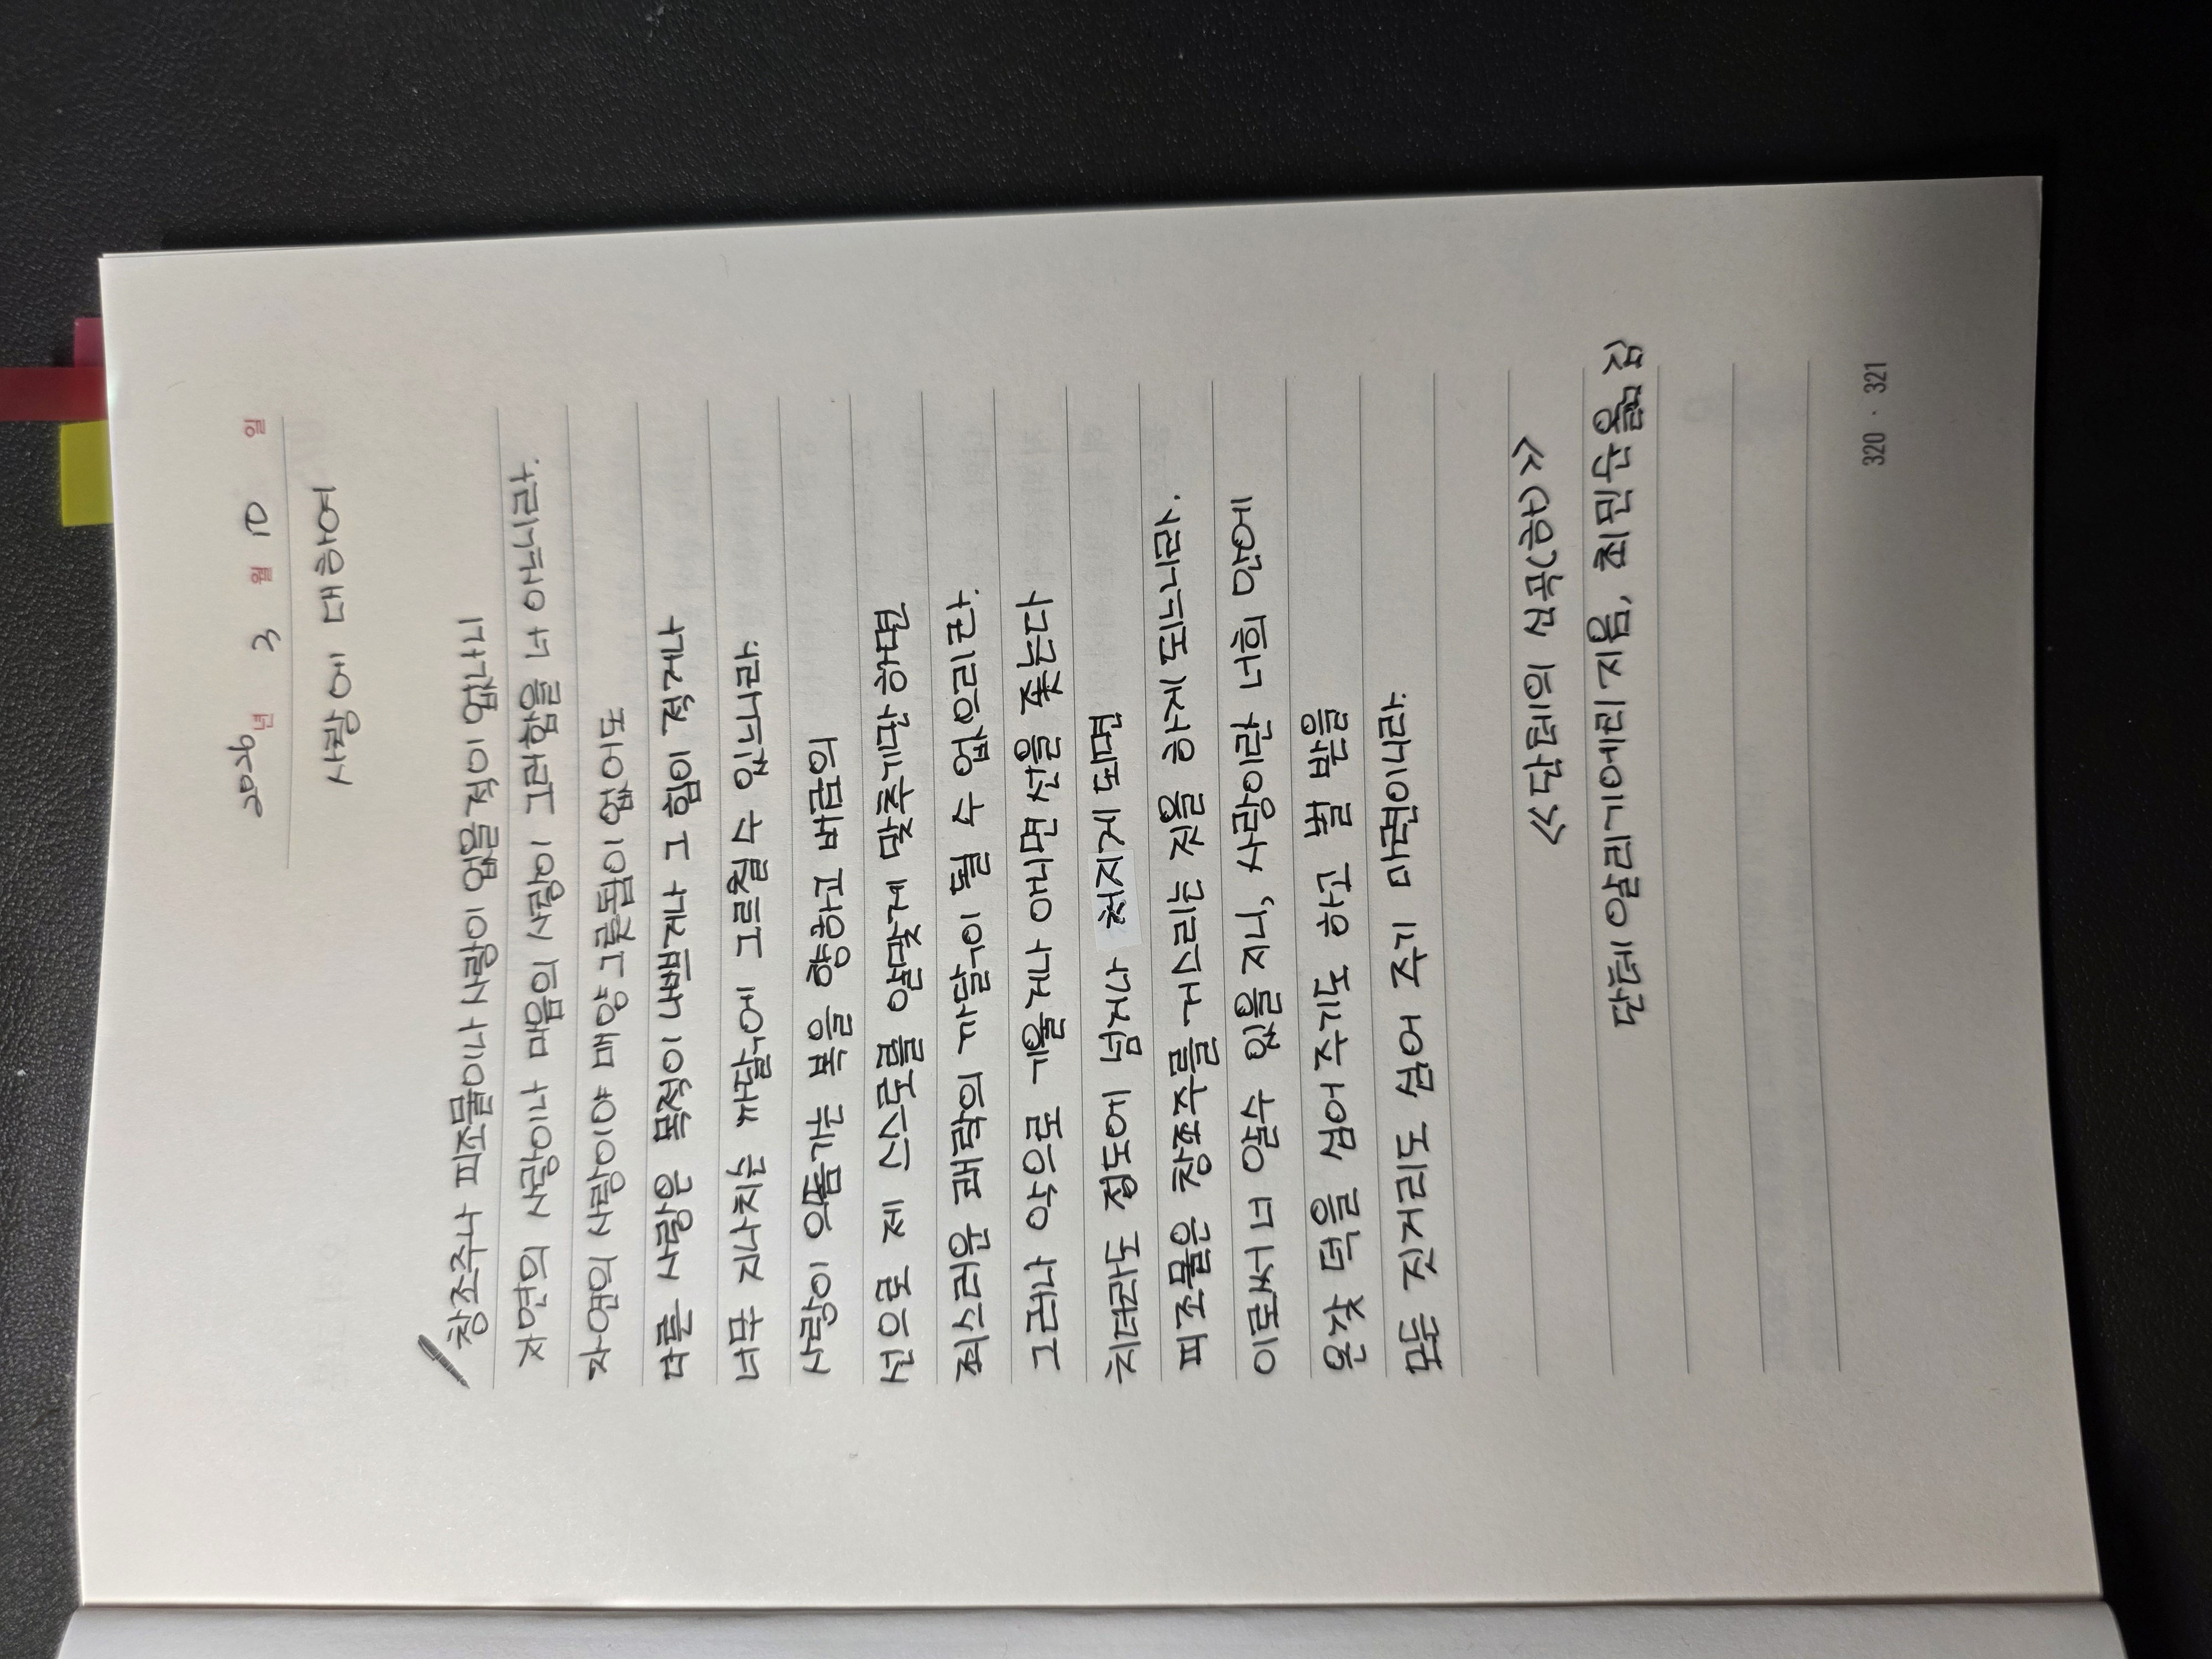 2026년 3월 10일
사랑에 대하여
창조주나 피조물이나 사랑이 없을적이 없나니
자연의 사랑이나 마음의 사랑이 그러함을 너 아느니라.
자연의 사랑이야 매양 그릇됨이 없어도
다른 사랑은 목적이 나쁘거나 그 힘이 적거나
너무 지나치는 까닭에 그르칠 수 있느니라.
사랑이 으뜸가는 복을 향하고 버금의
선으로 제 스스로를 알맞게 맞추기만 하면
죄스러운 쾌락의 까닭이 될 수 없으리라.
그러나 악으로 기울거나 아니면 선을 좇는다
치더라도 정도에 넘거나 처지게 되면
피조물은 창조주를 거스리는 짓을 하게 되느니라.
이로써 너 알수 있을지니, 사랑이란 너희 안에
온갖 덕을 심어 주기도 하고 벌 받을
모든 짓거리도 심어 주기 마련이니라.
《단테의 신곡(하)》
단테 알리기에리 지음, 최민순 옮김
320 · 321